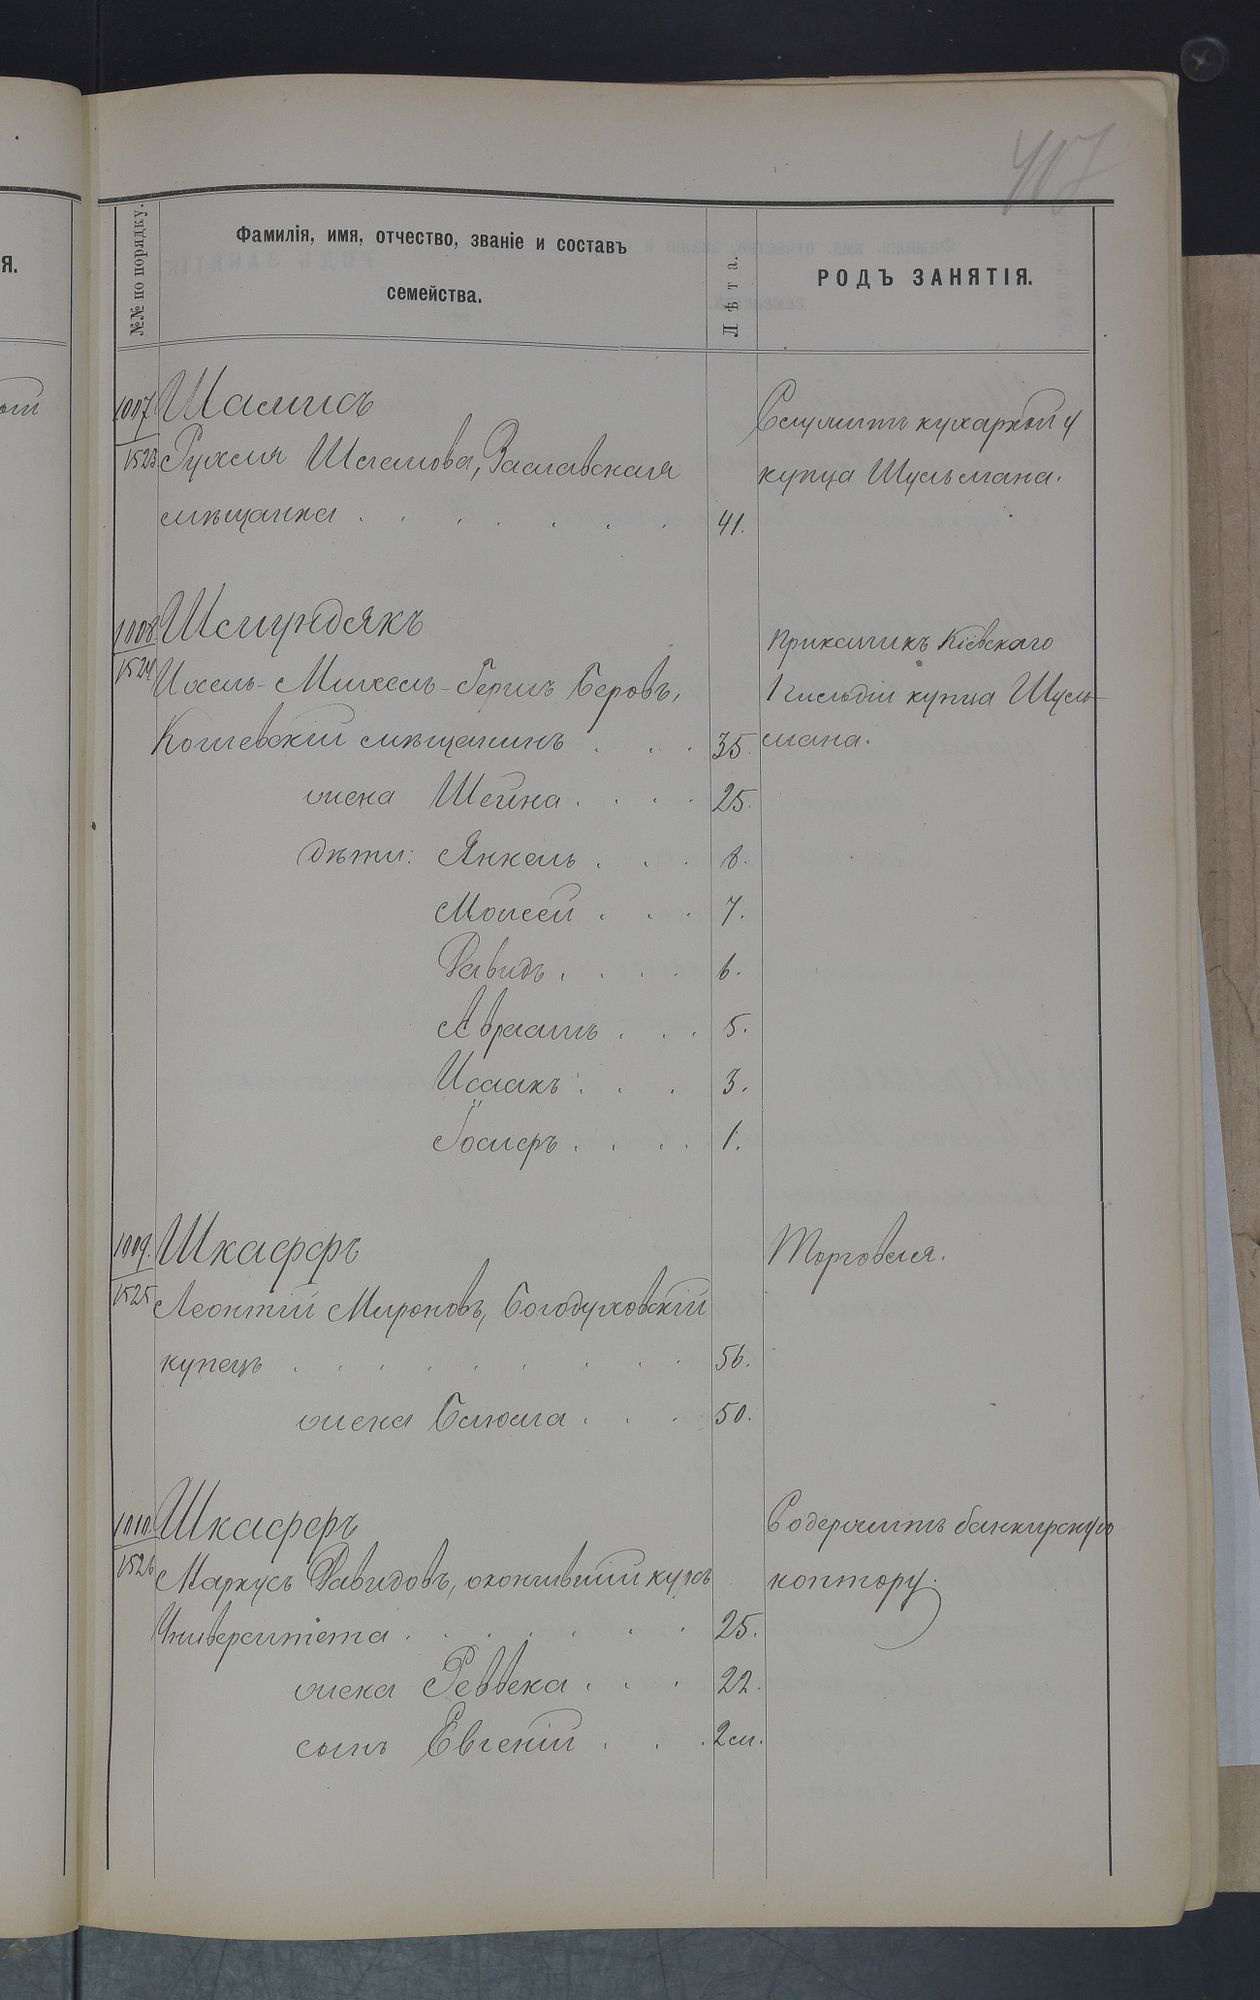 417
№№ по порядку.
Фамилія, имя, отчество, званіе и составъ
семейства.
Лѣта.
РОДЪ ЗАНЯТІЯ.
я.
1007
1523
Шалисъ
Рухля Шлемова, Заславская
мѣщанка . . . . . . . 41.
Служитъ кухаркой у
купца Шульмана.
1008
1524
Шмундякъ
Іосель-Михель-Гершъ Беровъ,
мѣщанинъ . . . 35.
Прикащикъ Кіевскаго
1 гильдіи купца Шуль-
мана.
жена Шейна . . . . 25.
дѣти: Янкель . . . 8.
Моисей . . . 7.
Давидъ . . . . 6.
Авраамъ . . . 5.
Исаакъ . . . 3.
Іосифъ . . . . 1.
1009.
1525
Шкаффъ
Леонтій Мироновъ, Богодуховскій
купецъ . . . . . . . . . 56.
Торговля.
жена Блюма . . . 50.
1010.
1526
Шкаффъ
Маркусъ Давидовъ, окончившій курсъ
Университета . . . . . . . 25.
Содержитъ банкирскую
контору.
жена Реввека . . . 22.
сынъ Евгеній . . . 2 м.